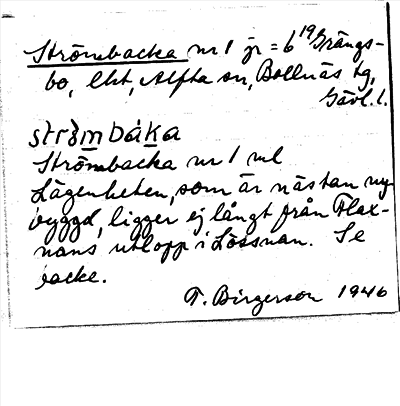 Strömbacka nr 1 jr = 6 19 Grängs-
bo, lht, Alfta sn, Bollnäs tg,
Gävl. l.
strömbáka
Strömbacka nr 1 ml
Lägenheten, som är nästan ny-
byggd, ligger ej långt från Flax-
nans utlopp i Lössnan. Se
backe.
T. Birgerson 1946